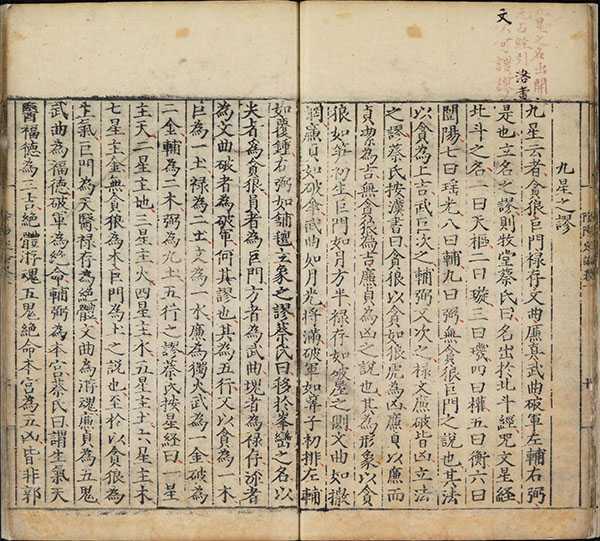 九星之名出開
元占經引洛書
文不可謂謬
九星之謬
九星云者貪狼巨門禄存文曲廉貞武曲破軍左輔右弼
是也立名之謬則牧堂蔡氏曰名出於北斗經咒文星經
北斗之名一曰天樞二曰璇三曰璣四曰權五曰衡六曰
闓陽七曰瑤光八曰輔九曰弼無貪狼巨門之說也其法
以貪為上吉武巨次之輔弼又次之禄文廉破皆凶立法
之謬蔡氏按漢書曰貪狼以貪如狼虎為凶廉貞以廉而
貞為吉無貪狼為吉廉貞為凶之說也其為形象以貪
狼如笋初生巨門如月方半禄存如破屋之文曲如撒
網廉貞如破傘武曲如月光將滿破軍如筭子初排左輔
如覆鍾右弼如鋪氊立象之謬蔡氏曰移於峯巒之名以
尖者為貪狼員者為巨門方者為武曲塊者為禄存者
為文曲破者為破軍何其謬也其為五行又以貪為一木
巨為一土禄為二土文為一水廉為獨火武為一金破為
二金輔為二木弼為九土五行之謬蔡氏按星經曰一星
主天二星主地三星主火四星主水五星主土六星主木
七星主金無貪狼為木巨門為土之說也至於以貪狼為
生氣巨門為天醫禄存為絕體文曲為游魂廉貞為五鬼
武曲為福德破軍為絕命輔弼為本宮蔡氏曰謂生氣天
醫福德為三吉絕體游魂五鬼絕命本宮為五凶皆非郭